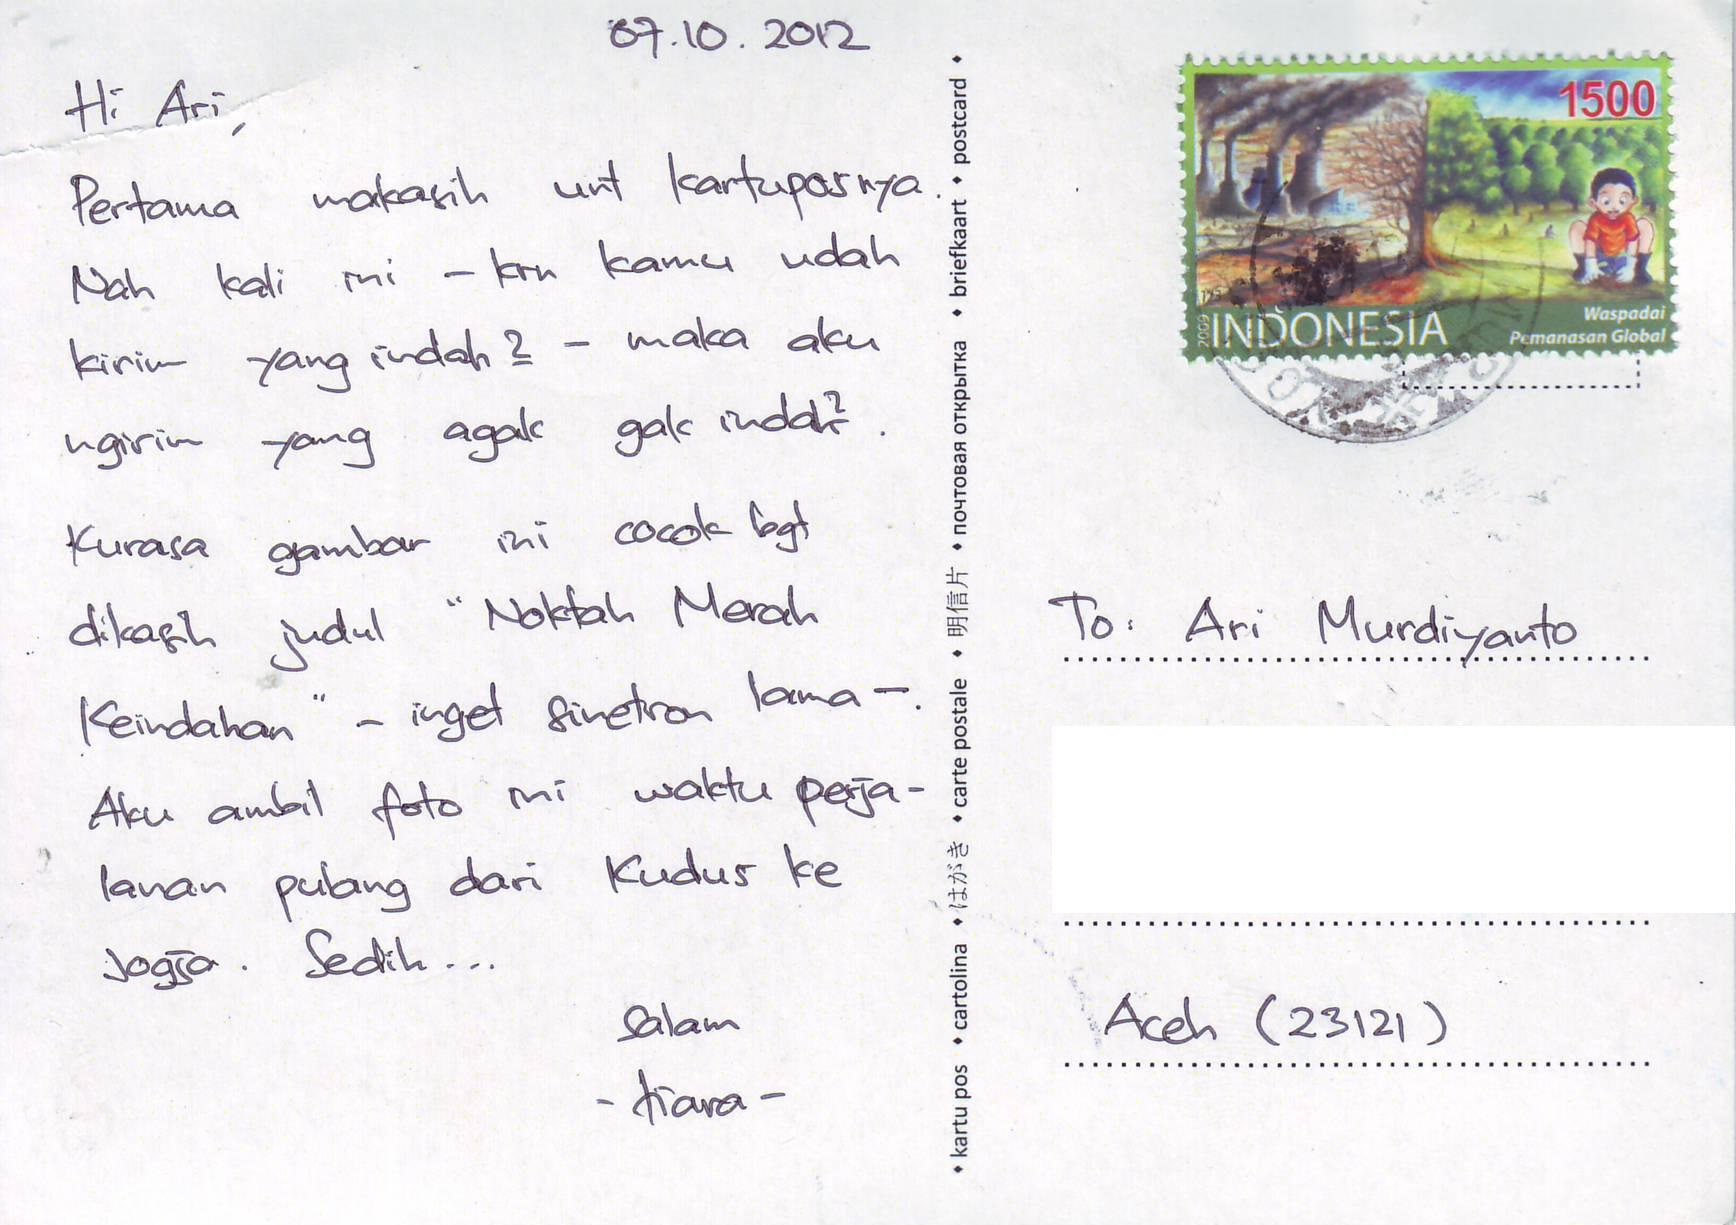 07.10.2012
Hi Ari,
Pertama makasih unt kartuposnya.
Nah kali ini - krn kamu udah
kirim yang indah2 - maka aku
ngirim yang agak gak indah2.
Kurasa gambar ini cocok bgt
dikasih judul "Noktah Merah
Keindahan" - inget sinetron lama -.
Aku ambil foto ini waktu perja-
lanan pulang dari Kudus ke
Jogja. Sedih...
Salam
- tiara -
• kartu pos • cartolina • はがき • carte postale • 明信片 • почтовая открытка • briefkaart • postcard •
1500
2009
INDONESIA
Waspadai
Pemanasan Global
To: Ari Murdiyanto
Aceh (23121)